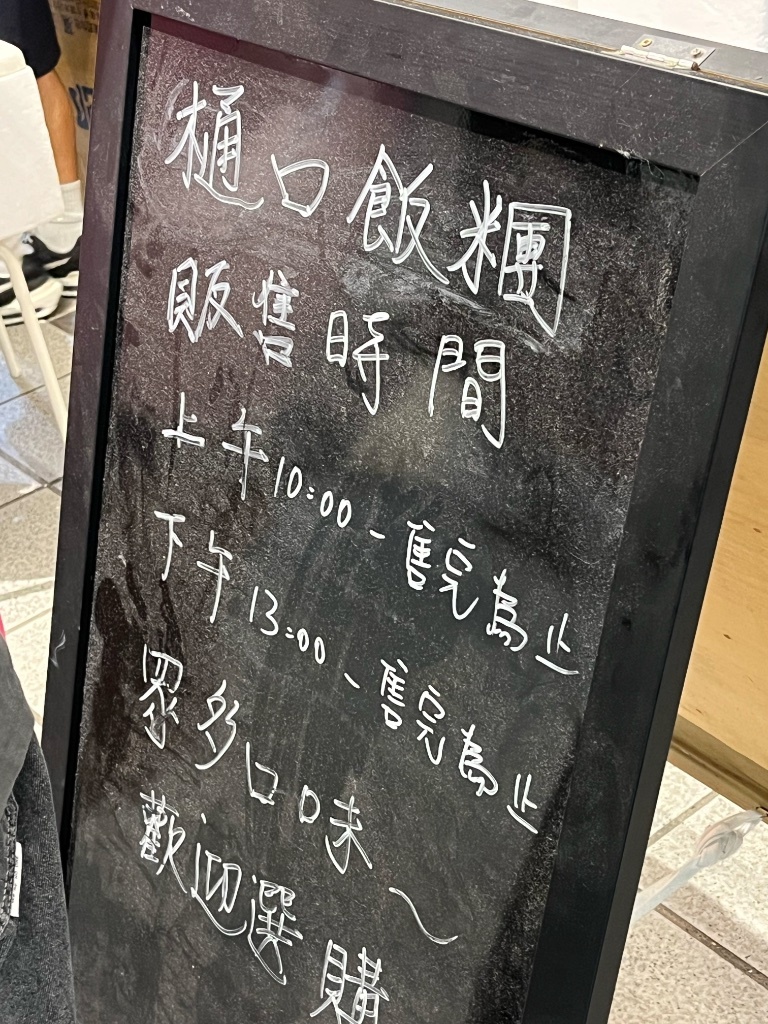 樋口飯糰
販售時間
上午10:00-售完為止
下午13:00、售完為止
眾多口味~
歡迎選購